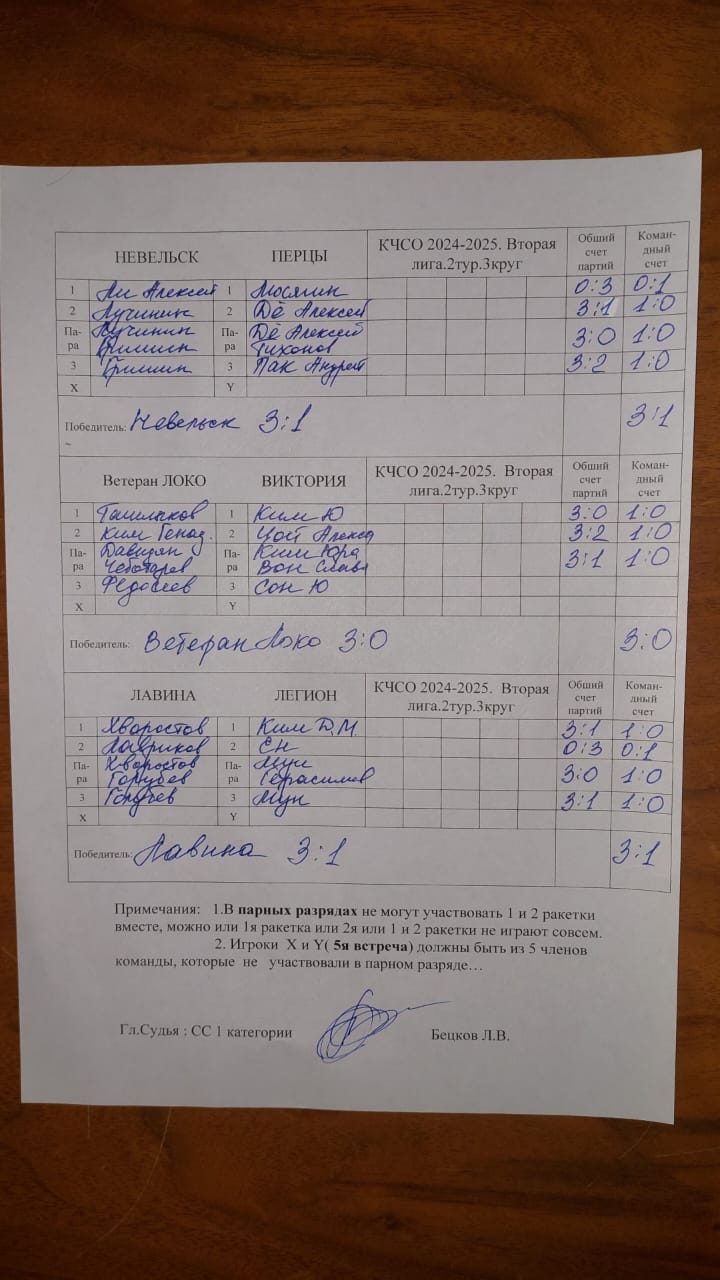 НЕВЕЛЬСК ПЕРЦЫ КЧСО 2024-2025. Вторая лига.2тур.3круг Общий счет партий Коман-дный счет
1 Ли Алексей 1 Мосягин 0:3 0:1
2 Лучинин 2 Дё Алексей 3:1 1:0
Па-ра Лучинин Гришин Па-ра Дё Алексей Тихонов 3:0 1:0
3 Гришин 3 Пак Андрей 3:2 1:0
X Y
Победитель: Невельск 3:1 3:1
~
Ветеран ЛОКО ВИКТОРИЯ КЧСО 2024-2025. Вторая лига.2тур.3круг Общий счет партий Коман-дный счет
1 1 Ким Ю 3:0 1:0
2 Ким Генад. 2 Цой Алекса 3:2 1:0
Па-ра Давидян Чеботарев Па-ра Ким Юра Вон Слава 3:1 1:0
3 Федосеев 3 Сон Ю
X Y
Победитель: Ветеран Локо 3:0 3:0
ЛАВИНА ЛЕГИОН КЧСО 2024-2025. Вторая лига.2тур.3круг Общий счет партий Коман-дный счет
1 Хворостов 1 Ким Д.М. 3:1 1:0
2 Лавриков 2 Ен 0:3 0:1
Па-ра Хворостов Голубев Па-ра Мун Герасимов 3:0 1:0
3 Голубев 3 Мун 3:1 1:0
X Y
Победитель: Лавина 3:1 3:1
Примечания: 1.В парных разрядах не могут участвовать 1 и 2 ракетки
вместе, можно или 1я ракетка или 2я или 1 и 2 ракетки не играют совсем.
2. Игроки X и Y( 5я встреча) должны быть из 5 членов
команды, которые не участвовали в парном разряде…
Гл.Судья : СС 1 категории Бецков Л.В.